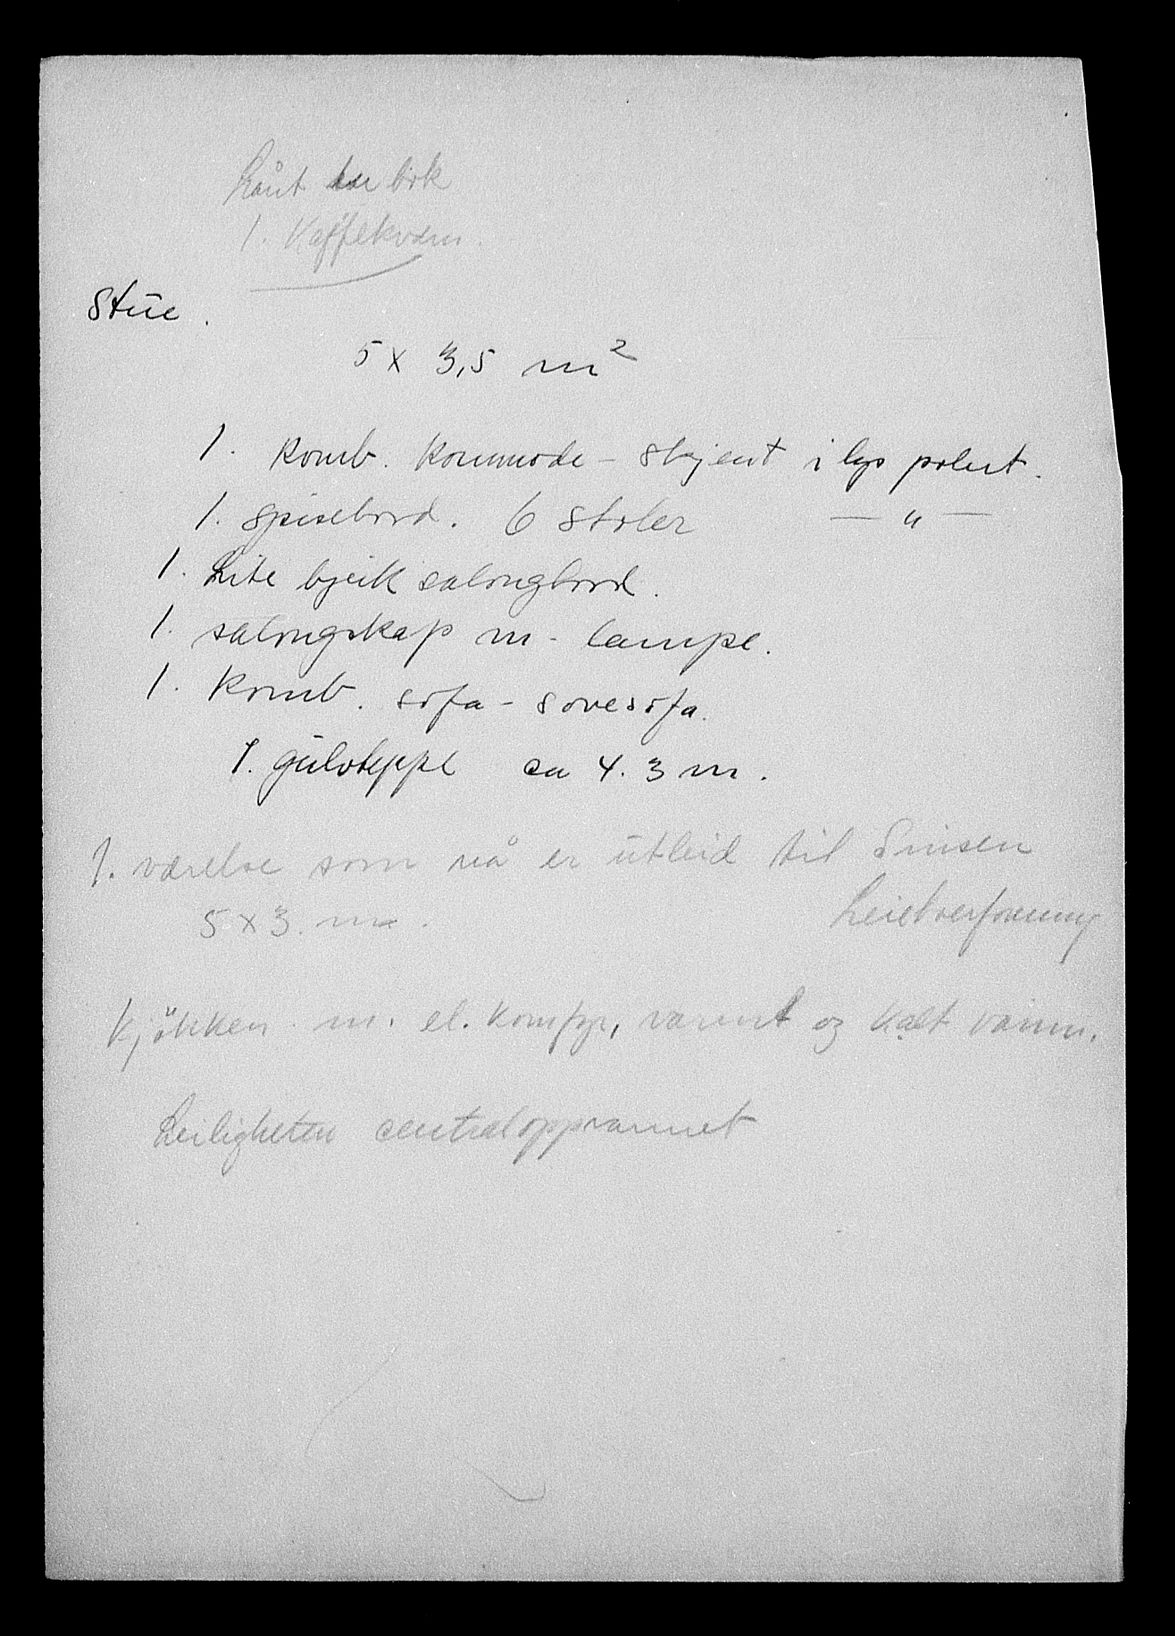 Lånt bok
1. Kaffekværn.
Stue.
5 x 3,5 m²
1. komb. kommode - skjent i lys polert.
1. spisebord. 6 stoler — " —
1. Lite bjerk salongbord.
1. salongskap m. lampe.
1. komb. sofa - sovesofa.
1. gulvteppe ca 4. 3 m.
1. værelse som nå er utleid til Sinsen
5 x 3. m.
Kjøkken m. el. komfyr, varmt og kalt vann.
Leiligheten centraloppvarmet